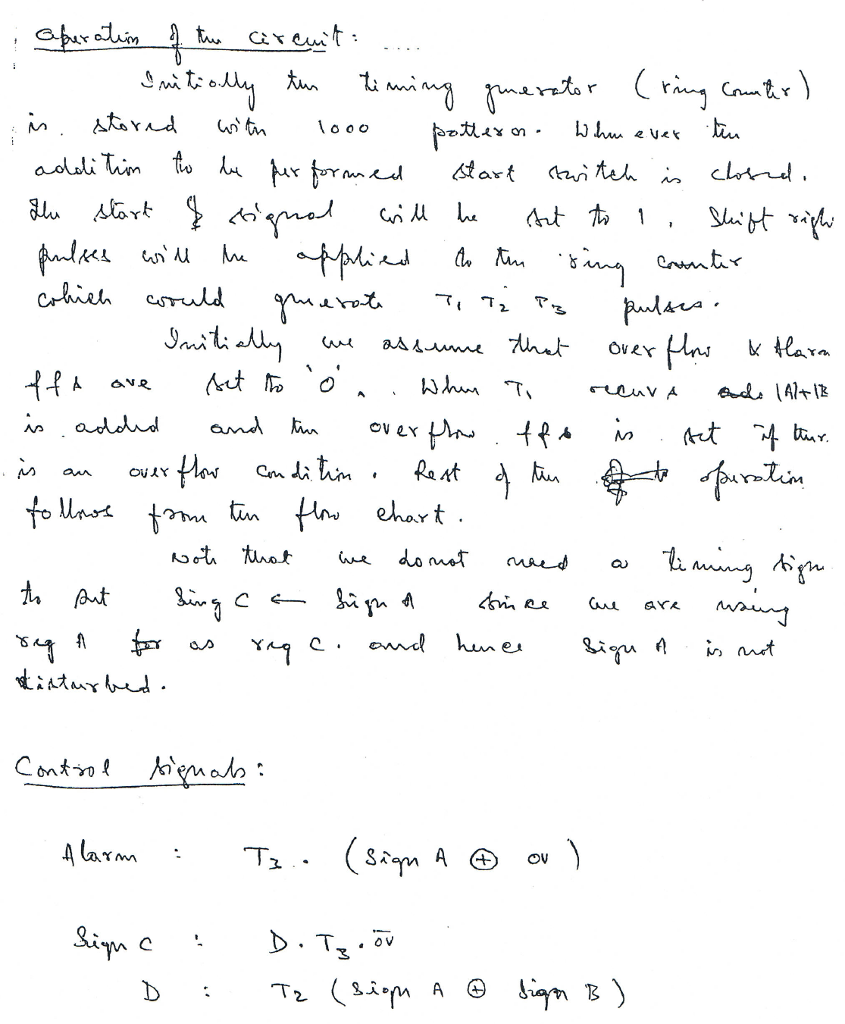 Operation of the circuit:
Initially the timing generator (ring counter)
is stored with 1000 pattern. Whenever the
addition to be performed start switch is closed.
The start signal will be set to 1. Shift right
pulses will be applied to the ring counter
which would generate T1 T2 T3 pulses.
Initially we assume that overflow & Alarm
ffs are set to '0'. When T1 occurs |A|+|B
is added and the overflow ffs is set if there
is an overflow condition. Rest of the operation
follows from the flow chart.
Note that we donot need a timing sign
to put Sing C ← Sign A since we are using
reg A as reg C. and hence Sign A is not
disturbed.
Control signals:
Alarm : T3 . (Sign A ⊕ ov)
Sign C : D . T3 . o̅v̅
D : T2 (Sign A ⊕ Sign B)